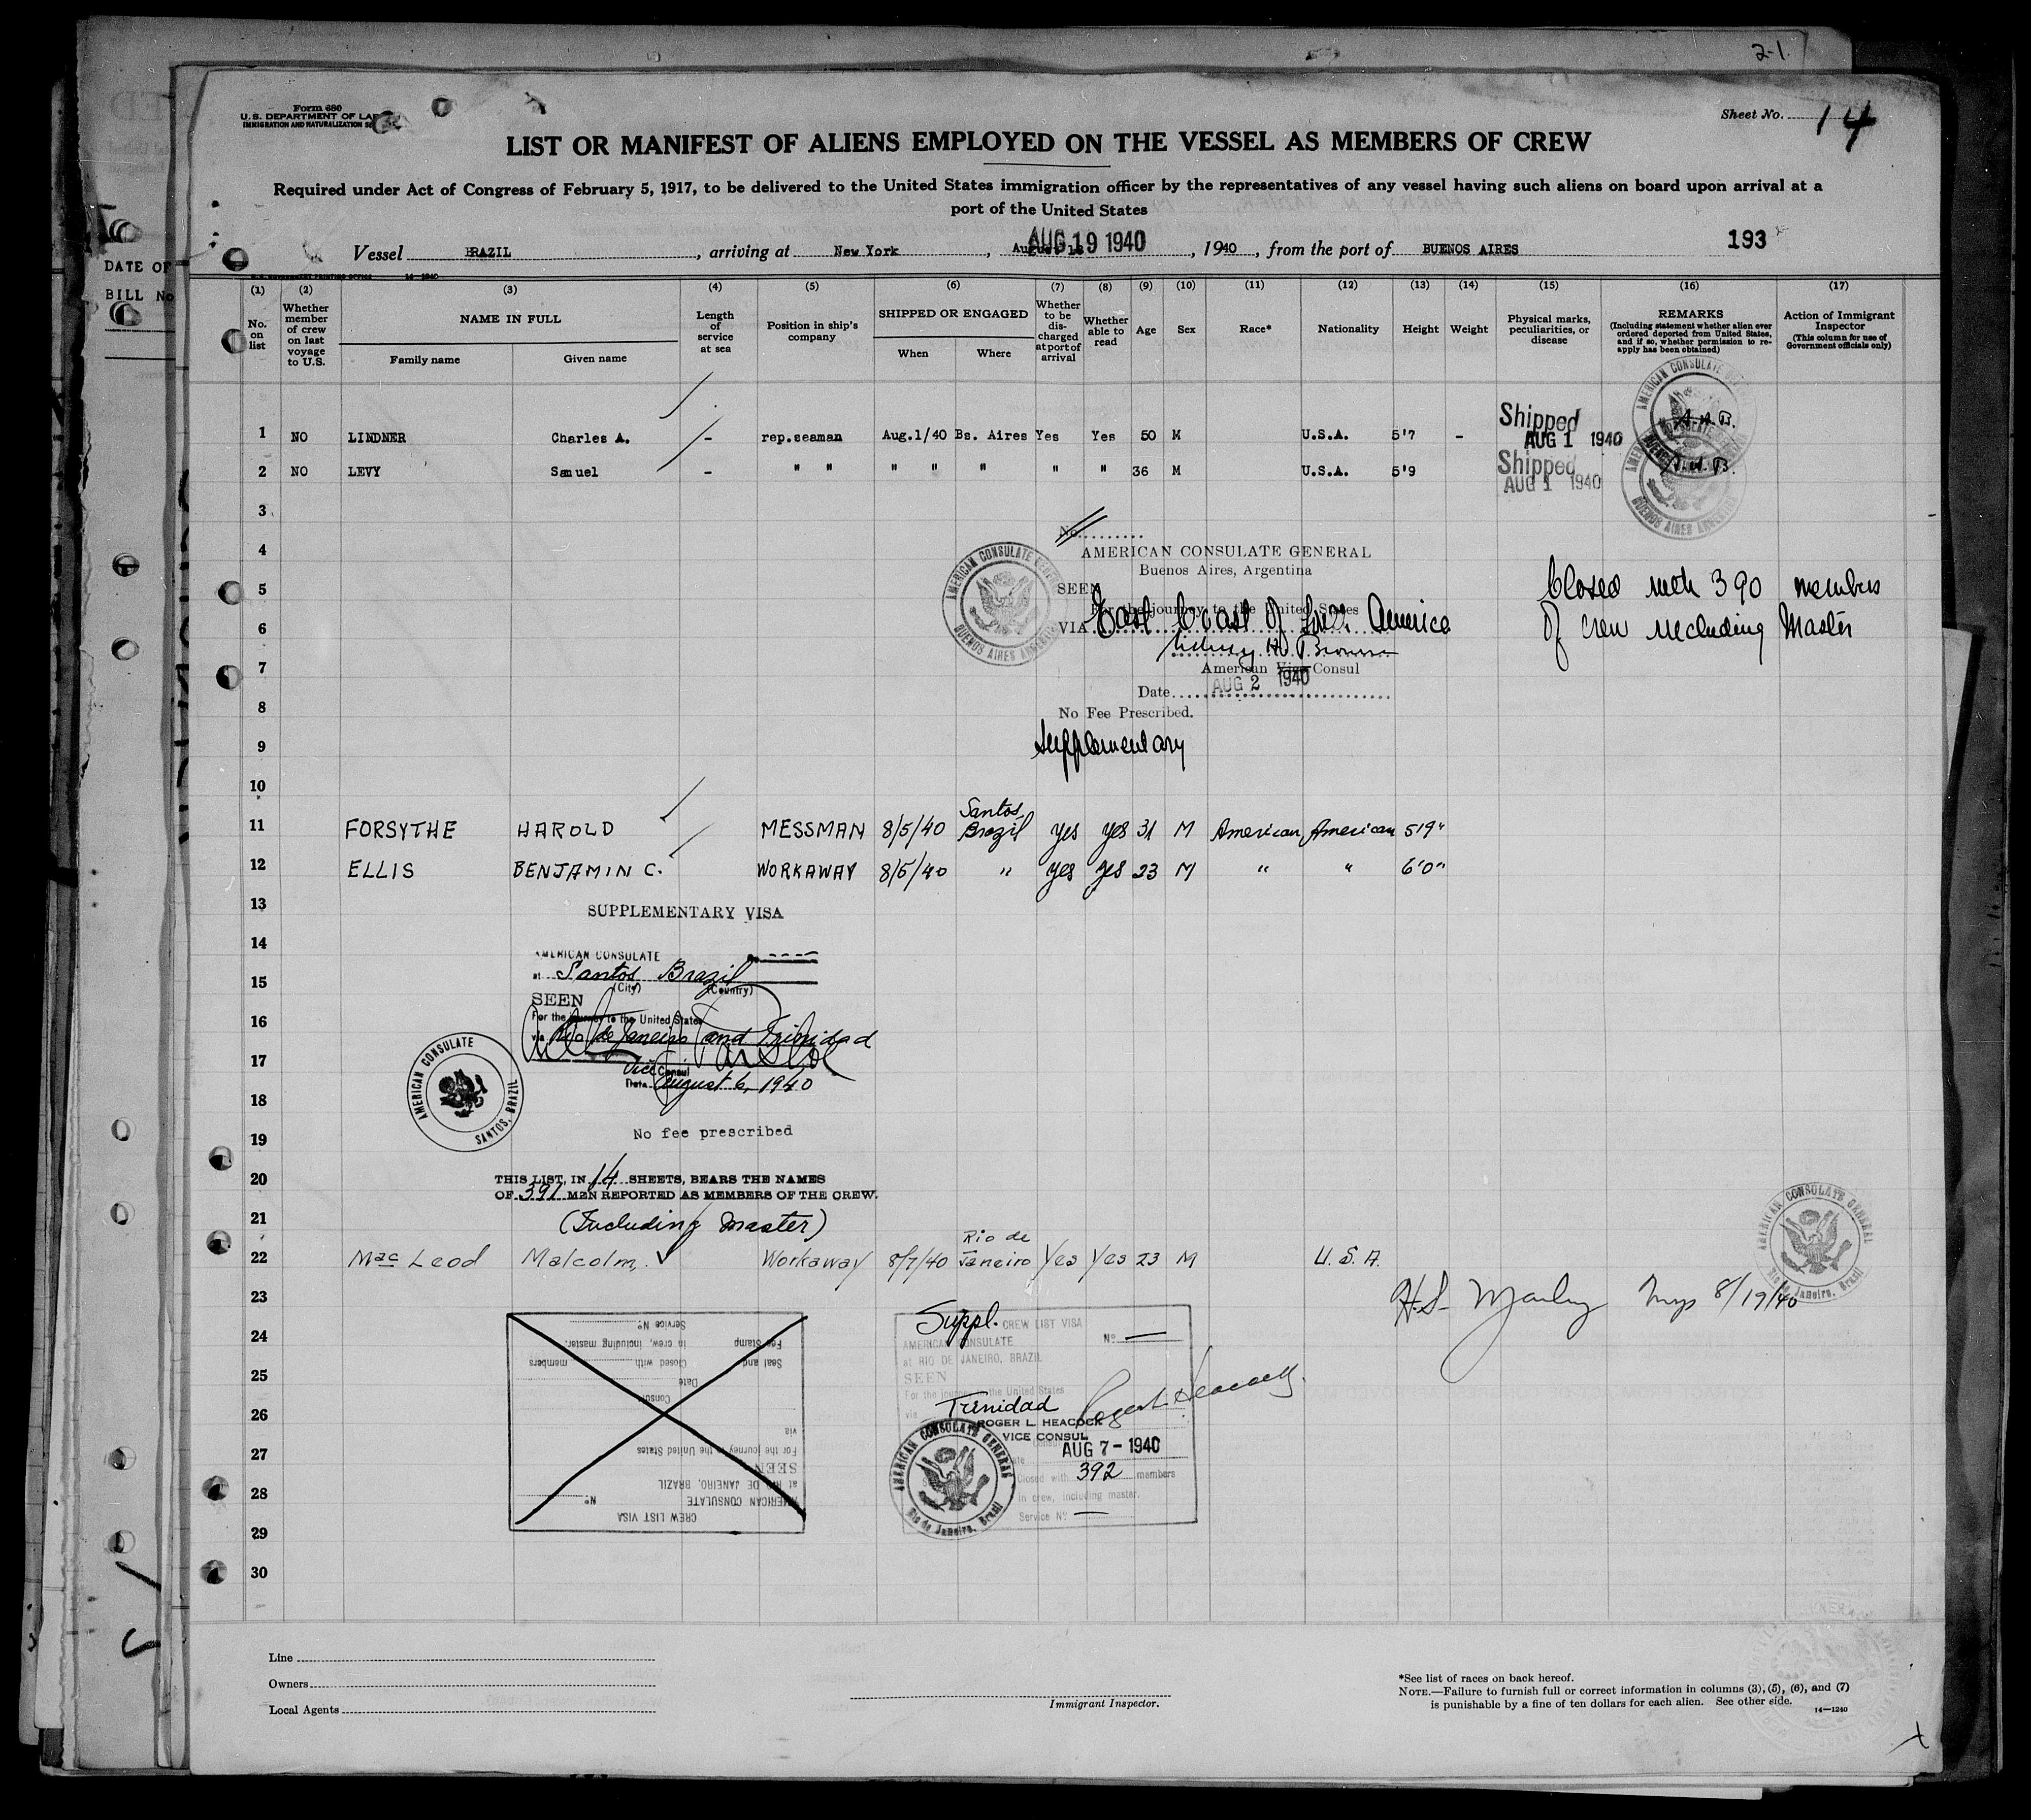 2-1.
Form 680
U.S. DEPARTMENT OF LA
IMMIGRATION AND NATURALIZATION S
Sheet No. 14
LIST OR MANIFEST OF ALIENS EMPLOYED ON THE VESSEL AS MEMBERS OF CREW
Required under Act of Congress of February 5, 1917, to be delivered to the United States immigration officer by the representatives of any vessel having such aliens on board upon arrival at a
port of the United States
Vessel BRAZIL, arriving at New York, AUG 19 1940, 1940, from the port of BUENOS AIRES
193
DATE OF
BILL No
(1) (2) (3) (4) (5) (6) (7) (8) (9) (10) (11) (12) (13) (14) (15) (16) (17)
No. on list
Whether member of crew on last voyage to U.S.
NAME IN FULL
Family name
Given name
Length of service at sea
Position in ship's company
SHIPPED OR ENGAGED
When
Where
Whether to be discharged at port of arrival
Whether able to read
Age
Sex
Race*
Nationality
Height
Weight
Physical marks, peculiarities, or disease
REMARKS
(Including statement whether alien ever ordered deported from United States, and if so, whether permission to reapply has been obtained)
Action of Immigrant Inspector
(This column for use of Government officials only)
1 NO LINDNER Charles A. - rep.seaman Aug.1/40 Bs. Aires Yes Yes 50 M U.S.A. 5'7 - Shipped AUG 1 1940
2 NO LEVY Samuel - " " " " " " " 36 M U.S.A. 5'9 Shipped AUG 1 1940
3
No.
4
AMERICAN CONSULATE GENERAL
Buenos Aires, Argentina
5
SEEN
For the journey to the United States
6
VIA East Coast of South America
American Vice Consul
7
Date AUG 2 1940
8
No Fee Prescribed.
9
Supplementary
AMERICAN CONSULATE GENERAL
BUENOS AIRES ARGENTINA
Closed with 390 members
of crew including Master
10
11 FORSYTHE HAROLD MESSMAN 8/5/40 Santos, Brazil yes yes 31 M American American 5'9"
12 ELLIS BENJAMIN C. WORKAWAY 8/5/40 " yes yes 23 M " " 6'0"
13
SUPPLEMENTARY VISA
14
AMERICAN CONSULATE
15
at Santos Brazil
(City) (Country)
SEEN
16
For the journey to the United States
via Rio de Janeiro and Trinidad
17
Vice Consul
Date August 6, 1940
18
AMERICAN CONSULATE
SANTOS, BRAZIL
19
No fee prescribed
20
THIS LIST, IN 14 SHEETS, BEARS THE NAMES
OF 391 MEN REPORTED AS MEMBERS OF THE CREW.
21
(Including Master)
22 MacLeod Malcolm Workaway 8/7/40 Rio de Janeiro Yes Yes 23 M U.S.A.
AMERICAN CONSULATE GENERAL
Rio de Janeiro, Brasil
23
8/19/40
24
25
26
27
28
29
30
CREW LIST VISA
AMERICAN CONSULATE No
at RIO DE JANEIRO, BRAZIL
SEEN
For the journey to the United States
via
Consul
Date
Seal and Closed with members
Fee Stamp in crew, including master.
Service No
Suppl. CREW LIST VISA
AMERICAN CONSULATE No —
at RIO DE JANEIRO, BRAZIL
SEEN
For the journey to the United States
via Trinidad
ROGER L. HEACOCK
VICE CONSUL
AUG 7 - 1940
Closed with 392 members
in crew, including master.
Service No —
AMERICAN CONSULATE GENERAL
Rio de Janeiro, Brasil
Line
Owners
Local Agents
Immigrant Inspector.
*See list of races on back hereof.
NOTE.—Failure to furnish full or correct information in columns (3), (5), (6), and (7)
is punishable by a fine of ten dollars for each alien. See other side.
14—1240